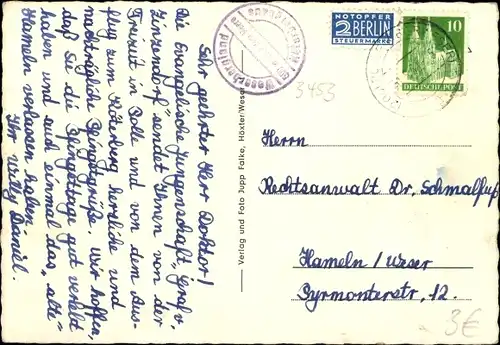 Sehr geehrter Herr Doktor!
Die Evangelische Jungenschaft "Graf v.
Zinzendorf" sendet Ihnen von der
Freizeit in Polle und von dem Aus-
flug zum Köterberg herzliche und
nachträgliche Pfingstgrüße. Wir hoffen,
daß Sie die Pfingsttage gut verlebt
haben und auch einmal das "alte"
Hameln verlassen haben.
Ihr Willy Daniel.
Verlag und Foto Jupp Falke, Höxter/Weser
NOTOPFER
2 BERLIN
STEUERMARKE
10
DEUTSCHE POST
3453
Herrn
Rechtsanwalt Dr. Schmalfuß
Hameln/Weser
Pyrmonterstr. 12.
3€